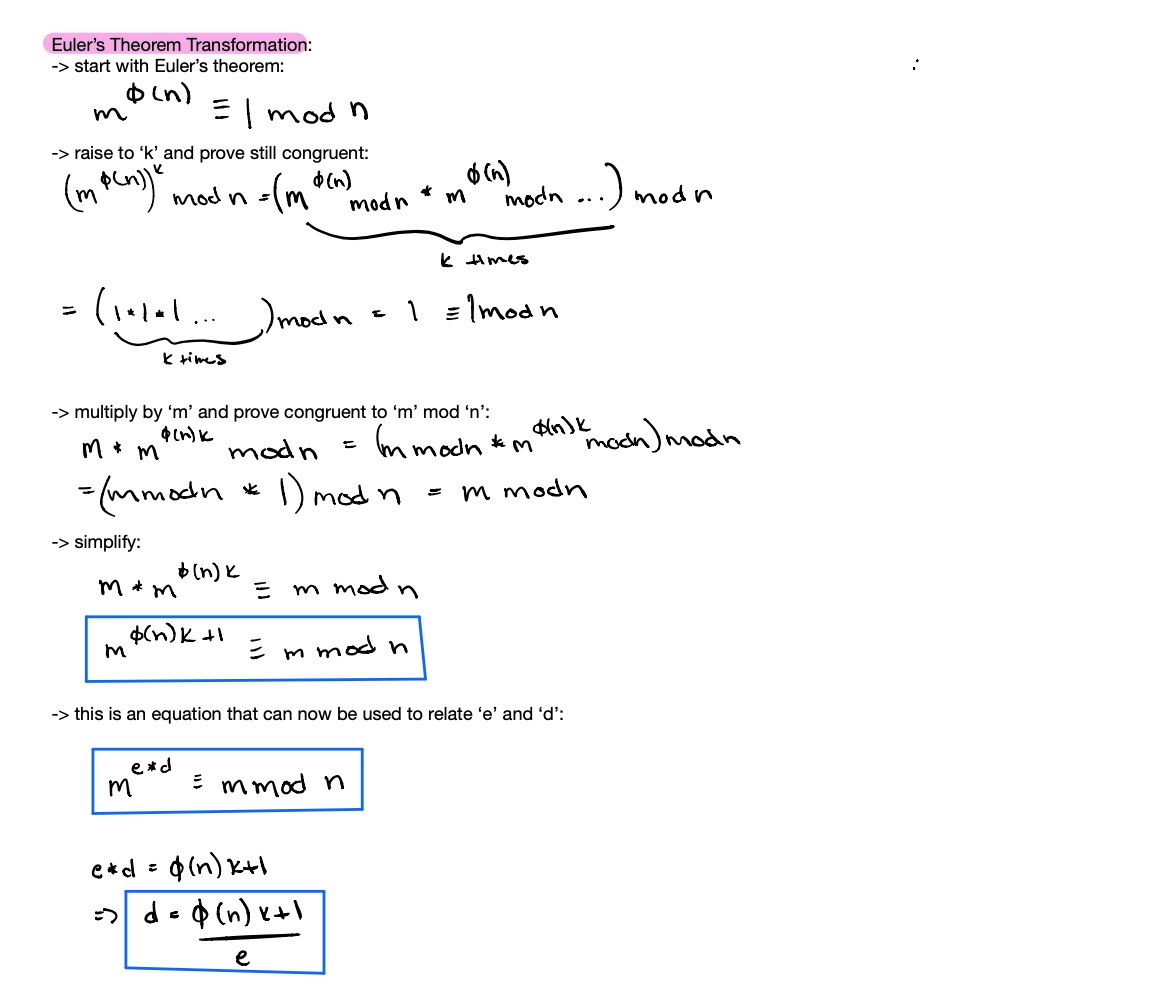 Euler's Theorem Transformation:
-> start with Euler's theorem:
m^ϕ(n) ≡ 1 mod n
-> raise to 'k' and prove still congruent:
(m^ϕ(n))^k mod n = (m^ϕ(n) mod n * m^ϕ(n) mod n ...) mod n
k times
= (1*1*1 ... ) mod n = 1 ≡ 1 mod n
k times
-> multiply by 'm' and prove congruent to 'm' mod 'n':
m * m^ϕ(n)k mod n = (m mod n * m^ϕ(n)k mod n) mod n
= (m mod n * 1) mod n = m mod n
-> simplify:
m * m^ϕ(n)k ≡ m mod n
m^ϕ(n)k+1 ≡ m mod n
-> this is an equation that can now be used to relate 'e' and 'd':
m^e*d ≡ m mod n
e*d = ϕ(n)k+1
=> d = ϕ(n)k+1
e